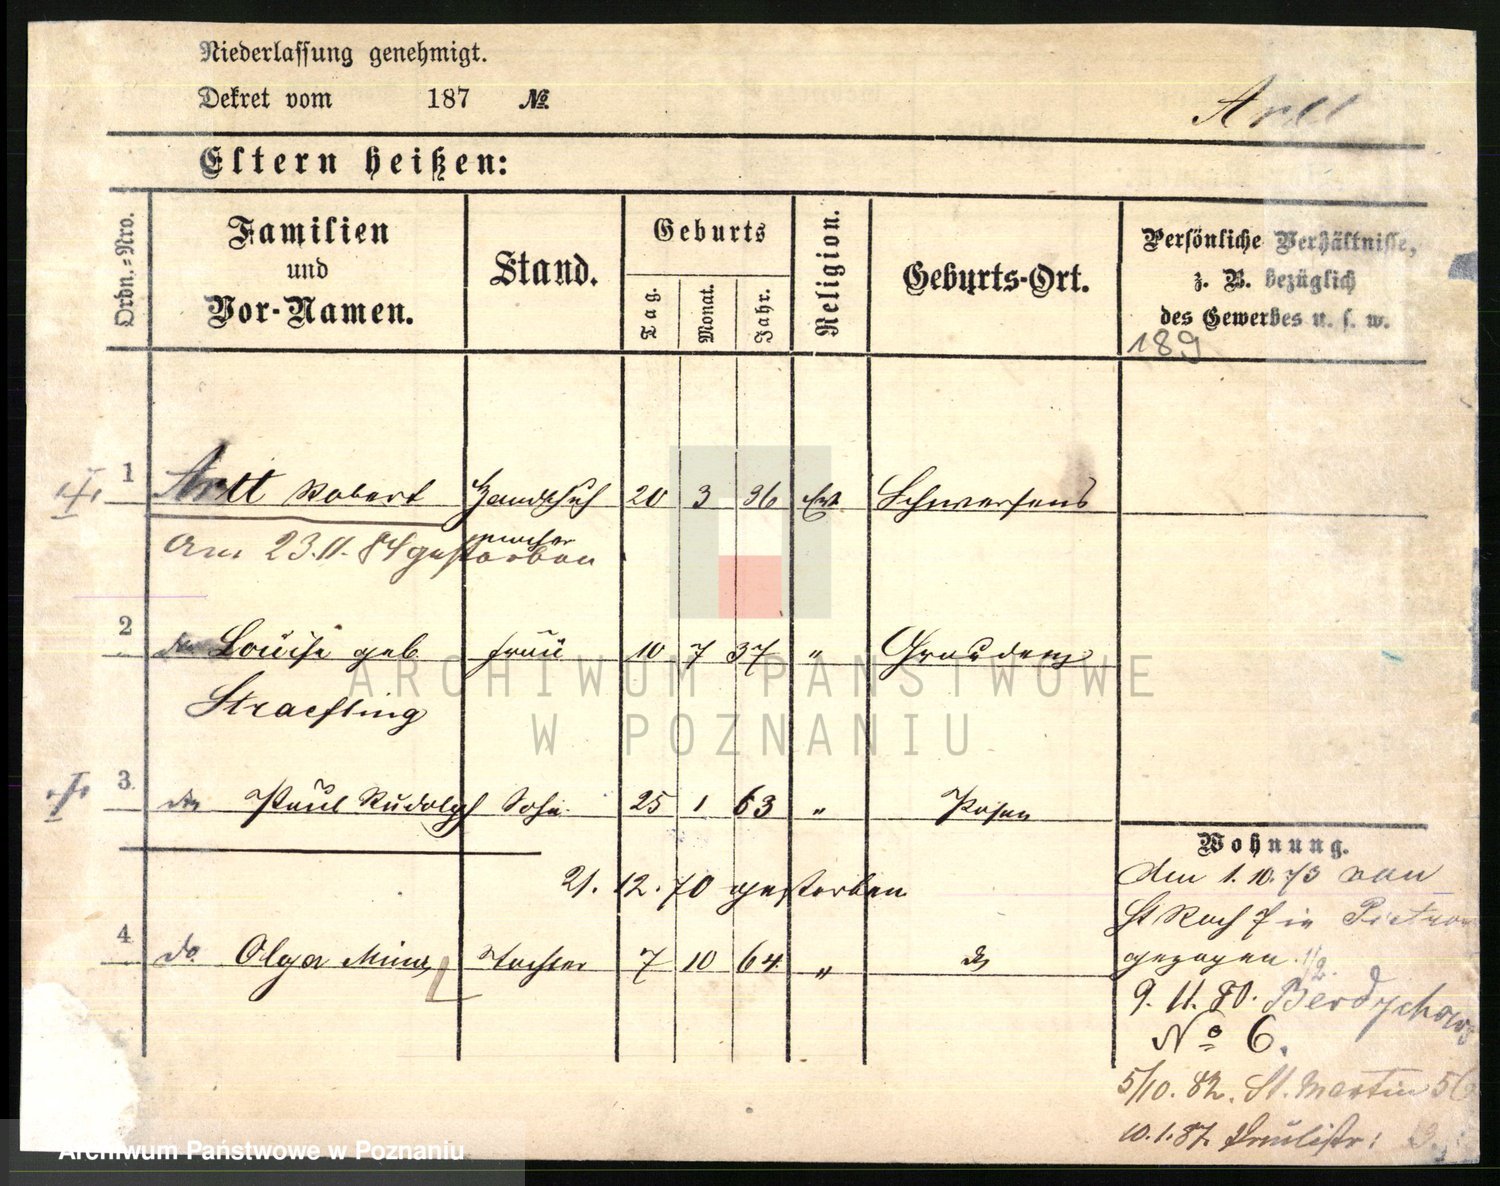 Niederlassung genehmigt.
Dekret vom 187 №
Artt
Eltern heißen:
Ordn.-Nro.
Familien
und
Vor-Namen.
Stand.
Geburts
Tag.
Monat.
Jahr.
Religion.
Geburts-Ort.
Persönliche Verhältnisse,
z. B. bezüglich
des Gewerbes u. s. w.
189
1 Artt Robert Handschuh 20 3 36 Ev Schwersenz
macher
Am 23.11.84 gestorben
2 do Louise geb. Frau 10 7 37 " Graudenz
ARCHIWUM PAŃSTWOWE
W POZNANIU
3 do Paul Rudolph Sohn 25 1 63 " Posen
21. 12. 70 gestorben
4 do Olga Tochter 7 10 64 " do
Wohnung.
Am 1.10.73 von
St Roch 7 in
gezogen.
9. 11. 80.
No 6.
5/10. 82. St. Martin 56
10.1.87.
Archiwum Państwowe w Poznaniu